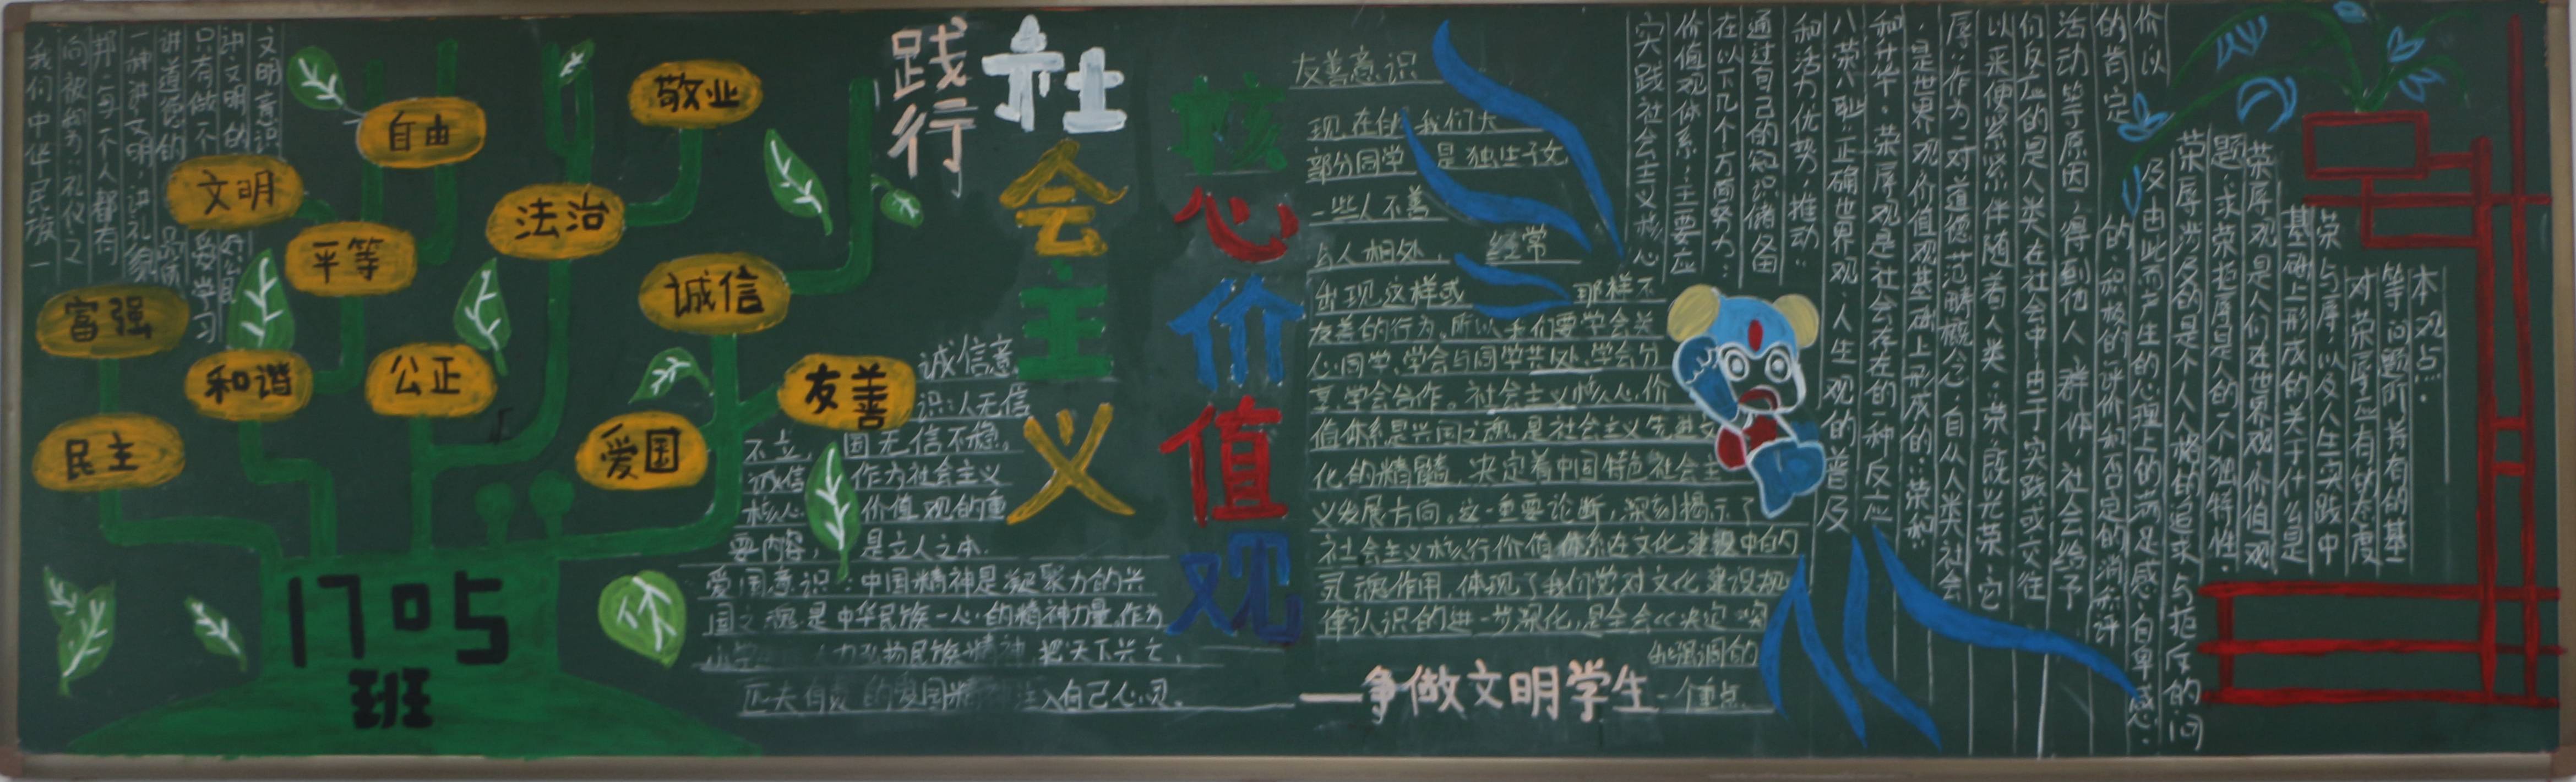 践行
社会主义
核心价值观
文明意识
讲文明的
只有做不
讲道德的
一种讲文明,讲礼貌
邦,每个人都有
向被称为:礼仪之
我们中华民族一
自由
敬业
文明
平等
法治
诚信
富强
和谐
公正
友善
民主
爱国
1705
班
诚信意
识:人无信
不立,国无信不稳。
诚信 作为社会主义
核心 价值观的重
要内容, 是立人之本.
爱国意识:中国精神是凝聚力的兴
国之魂是中华民族一心的精神力量,作为
民族精神 把天下兴亡,
匹夫有责的爱国精 入自己心灵。
友善意识
现在的我们大
部分同学 是独生子女
一些人不善
与人相处, 经常
出现这样或 那样不
友善的行为。所以我们要学会关
心同学,学会与同学共处,学会分
享,学会合作。社会主义核心价
值体系是兴国之魂,是社会主义先进文
化的精髓,决定着中国特色社会主
义发展方向。这一重要论断,深刻揭示了
社会主义核行价值体系在文化建设中的
灵魂作用,体现了我们党对文化建设规
律认识的进一步深化,是全会《决定》突
出强调的
一个重点.
—争做文明学生
实践社会主义核心
价值观体系,主要应
在以下几个方面努力:
通过自己的知识储备
和活力优势,推动
八荣八耻:正确世界观,人生观的普及
和升华,荣辱观是社会存在的一种反应
,是世界观价值观基础上形成的:荣和
辱:作为一对道德范畴概念,自从人类社会
以来便紧紧伴随着人类:荣,既光荣,它
们反应的是人类在社会中由于实践或交往
活动等原因,得到他人,群体,社会给予
的肯定 的:积极的评价和否定的消积评
价以
及由此而产生的心理上的满足感,自卑感.
荣辱涉及的是个人人格的追求与拒斥的问
题,求荣拒辱是人的不独特性.
荣辱观是人们在世界观价值观
基础上形成的关于什么是
荣与辱,以及人生实践中
对荣辱应有的态度
等问题所持有的基
本观点.